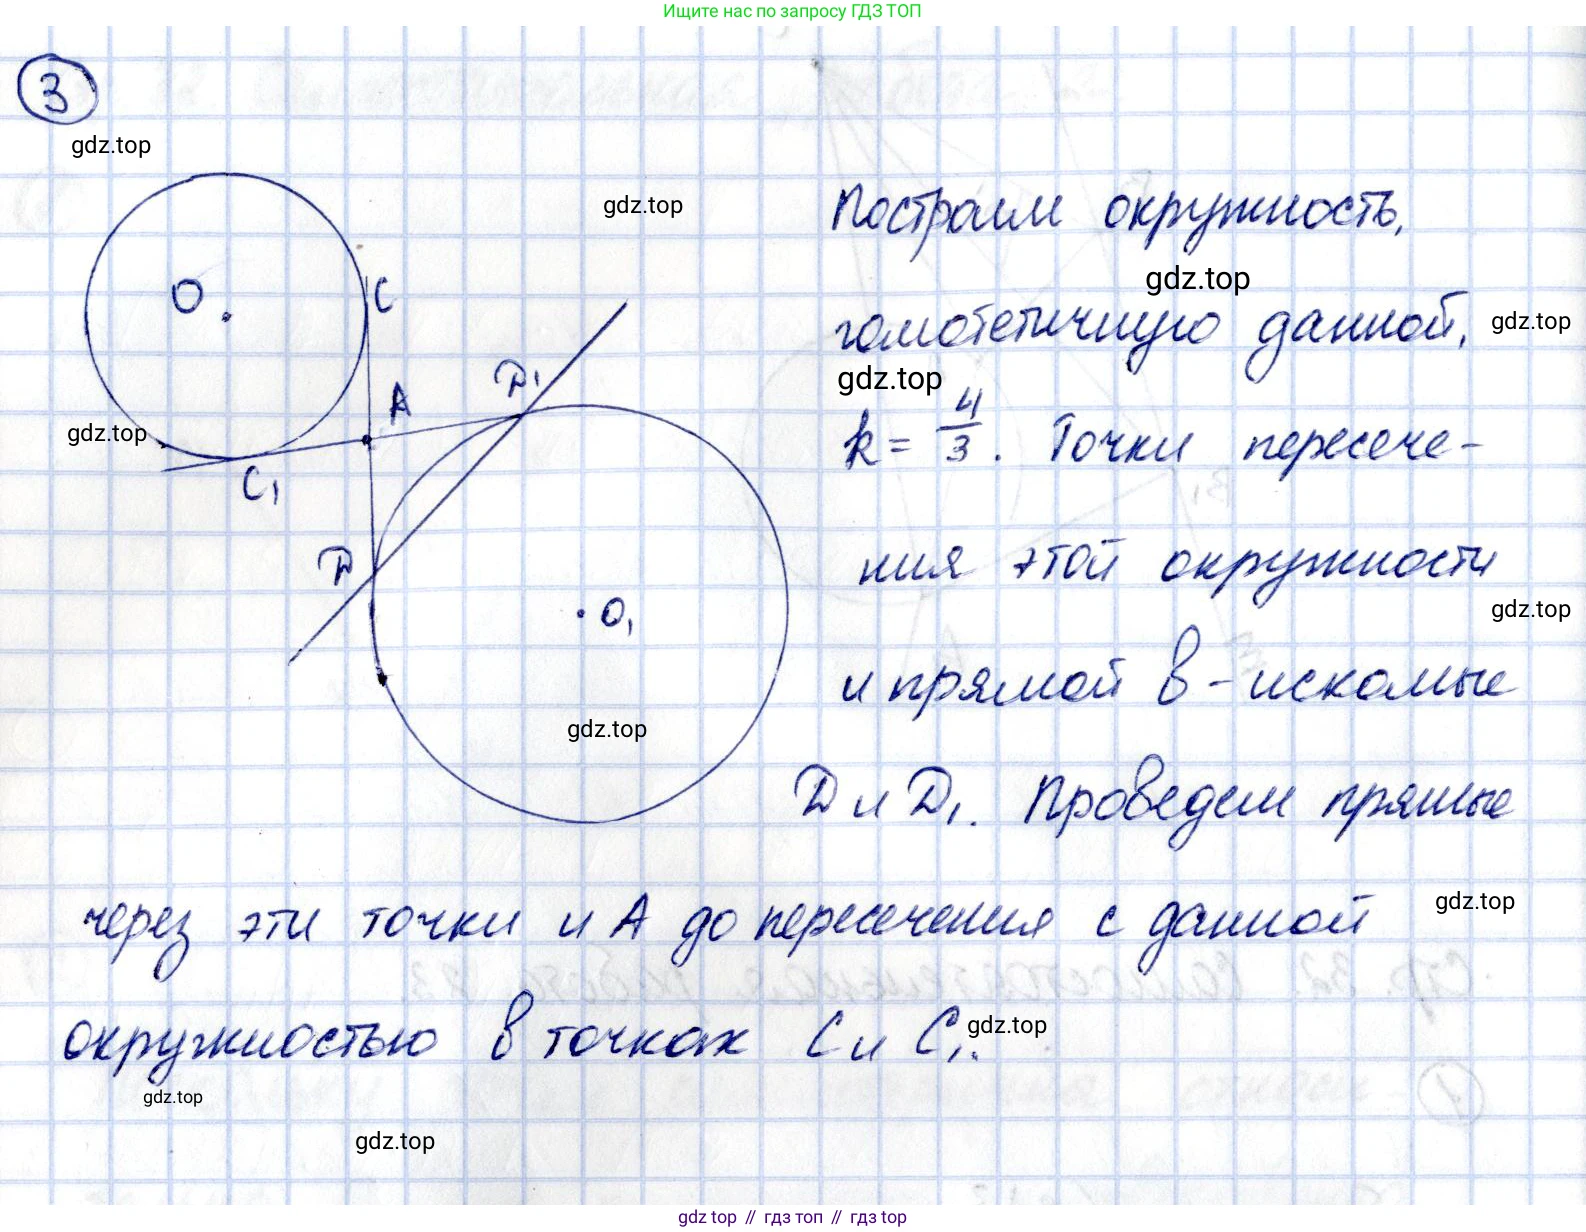 Ищите нас по запросу ГДЗ ТОП
3
gdz.top
gdz.top
Построим окружность,
gdz.top
O
C
гомотетичную данной,
gdz.top
gdz.top
D₁
A
k = 4/3. Точки пересече-
gdz.top
C₁
D
ния этой окружности
gdz.top
O₁
и прямой b - искомые
gdz.top
D и D₁. Проведем прямые
через эти точки и A до пересечения с данной
gdz.top
окружностью в точках C и C₁.
gdz.top
gdz.top
gdz.top
gdz.top // гдз топ // гдз top